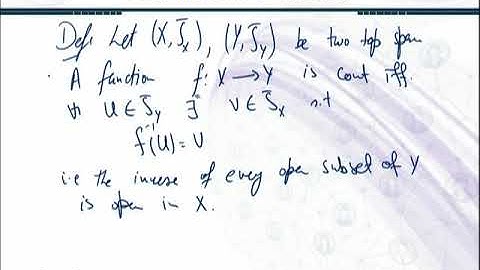 Def: Let (X, 𝒯x), (Y, 𝒯Y) be two top span
· A function f: X → Y is cont iff.
∀ U ∈ 𝒯Y ∃ V ∈ 𝒯x s.t
f⁻¹(U) = V
i.e the inverse of every open subset of Y
is open in X.